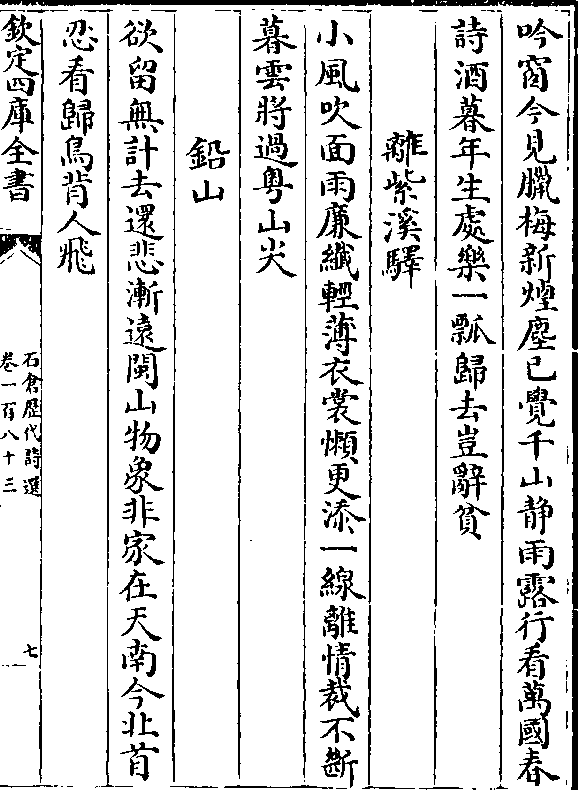 吟窗今見臘梅新煙塵已覺千山静雨露行看萬國春
詩酒暮年生處樂一瓢歸去豈辭貧
離紫溪驛
小風吹面雨廉纖輕薄衣裳懶更添一線離情裁不斷
暮雲將過粤山尖
鉛山
欲留無計去還悲漸遠閩山物象非家在天南今北首
忍看歸鳥背人飛
欽定四庫全書
石倉歷代詩選
卷一百八十三
七